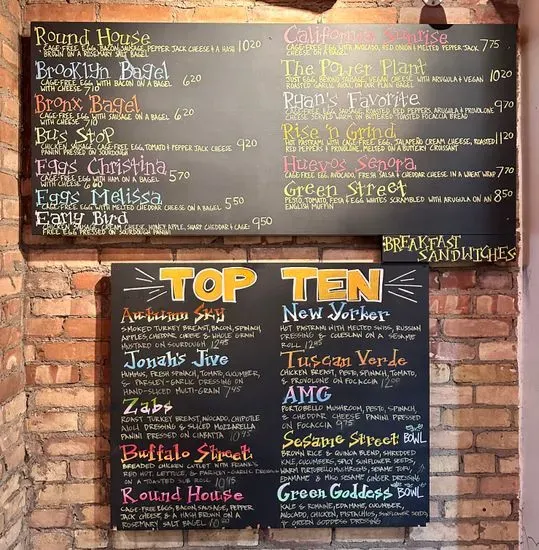 Round House
CAGE-FREE EGG, BACON, SAUSAGE, PEPPER JACK CHEESE & A HASH 10.20
BROWN ON A ROSEMARY SALT BAGEL
Brooklyn Bagel
CAGE-FREE EGG WITH BACON ON A BAGEL 6.20
WITH CHEESE 7.10
Bronx Bagel
CAGE-FREE EGG WITH SAUSAGE ON A BAGEL 6.20
WITH CHEESE 7.10
Bus Stop
CHICKEN SAUSAGE, CAGE-FREE EGG, TOMATO & PEPPER JACK CHEESE 9.20
PANINI PRESSED ON SOURDOUGH
Eggs Christina
CAGE-FREE EGG WITH HAM ON A BAGEL 5.70
WITH CHEESE 6.60
Eggs Melissa
CAGE-FREE EGG WITH MELTED CHEDDAR CHEESE ON A BAGEL 5.50
Early Bird
CHICKEN SAUSAGE, CREAM CHEESE, HONEY, APPLE, SHARP CHEDDAR & CAGE- 9.50
FREE EGG PRESSED ON SOURDOUGH PANINI
California Sunrise
CAGE-FREE EGG WITH AVOCADO, RED ONION & MELTED PEPPER JACK 7.75
CHEESE
The Power Plant
JUST EGG, BEYOND SAUSAGE, VEGAN CHEESE WITH ARUGULA & VEGAN 10.20
ROASTED GARLIC AIOLI, ON OUR PLAIN BAGEL
Ryan's Favorite
SAUSAGE, ROASTED RED PEPPERS, ARUGULA & PROVOLONE 9.70
CHEESE WITH ON BUTTERED TOASTED FOCACCIA BREAD
Rise 'n Grind
HOT PASTRAMI WITH CAGE-FREE EGG, JALAPEÑO CREAM CHEESE, ROASTED 11.20
RED PEPPERS & PROVOLONE, MELTED ON A BUTTERY CROISSANT
Huevos Senora
CAGE-FREE EGG, AVOCADO, FRESH SALSA & CHEDDAR CHEESE IN A WHEAT WRAP 7.70
Green Street
PESTO, TOMATO, FETA & EGG WHITES SCRAMBLED WITH ARUGULA ON AN 8.50
ENGLISH MUFFIN
BREAKFAST
SANDWICHES
TOP TEN
Autumn Sky
SMOKED TURKEY BREAST, BACON, SPINACH,
APPLES, CHEDDAR CHEESE & WHOLE GRAIN
MUSTARD ON SOURDOUGH 12.45
Jonahs Jive
HUMMUS, FRESH SPINACH, TOMATO, CUCUMBER,
& PARSLEY-GARLIC DRESSING ON
HAND-SLICED MULTI-GRAIN 7.45
Zabs
ROAST TURKEY BREAST, AVOCADO, CHIPOTLE
AIOLI DRESSING & SLICED MOZZARELLA
PANINI PRESSED ON CIABATTA 10.95
Buffalo Street
BREADED CHICKEN CUTLET WITH FRANK'S
RED HOT, LETTUCE, & PARSLEY-GARLIC DRESSING
ON A TOASTED SUB ROLL 10.45
Round House
CAGE-FREE EGGS, BACON, SAUSAGE, PEPPER
JACK CHEESE, & A HASH BROWN ON A
ROSEMARY SALT BAGEL
New Yorker
HOT PASTRAMI WITH MELTED SWISS, RUSSIAN
DRESSING & COLESLAW ON A SESAME
ROLL 12.45
Tuscan Verde
CHICKEN BREAST, PESTO, SPINACH, TOMATO,
& PROVOLONE ON FOCACCIA
AMG
PORTOBELLO MUSHROOM, PESTO, SPINACH,
& CHEDDAR CHEESE PANINI PRESSED
ON FOCACCIA 9.75
Sesame Street BOWL
BROWN RICE & QUINOA BLEND, SHREDDED
KALE, CUCUMBERS, SPICY SUNFLOWER SEEDS,
WARM PORTOBELLO MUSHROOMS, SESAME TOFU,
EDAMAME & MISO SESAME GINGER DRESSING
Green Goddess BOWL
KALE & ROMAINE, EDAMAME, CUCUMBER,
AVOCADO, CHICKEN, PISTACHIOS, SUNFLOWER SEEDS
& GREEN GODDESS DRESSING